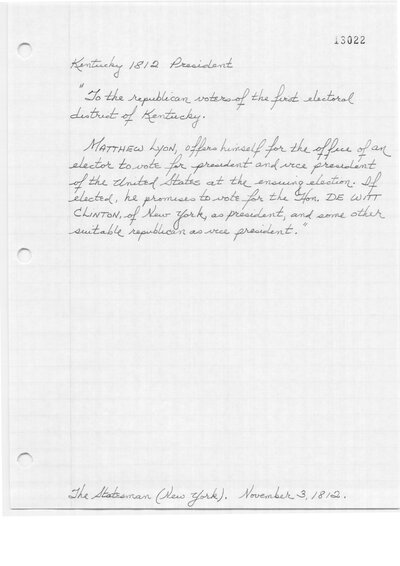 13022
Kentucky 1812 President
"To the republican voters of the first electoral
district of Kentucky.
MATTHEW LYON, offers himself for the office of an
elector to vote for president and vice president
of the United States at the ensuing election. If
elected, he promises to vote for the Hon. DE WITT
CLINTON, of New York, as president, and some other
suitable republican as vice president."
The Statesman (New York). November 3, 1812.